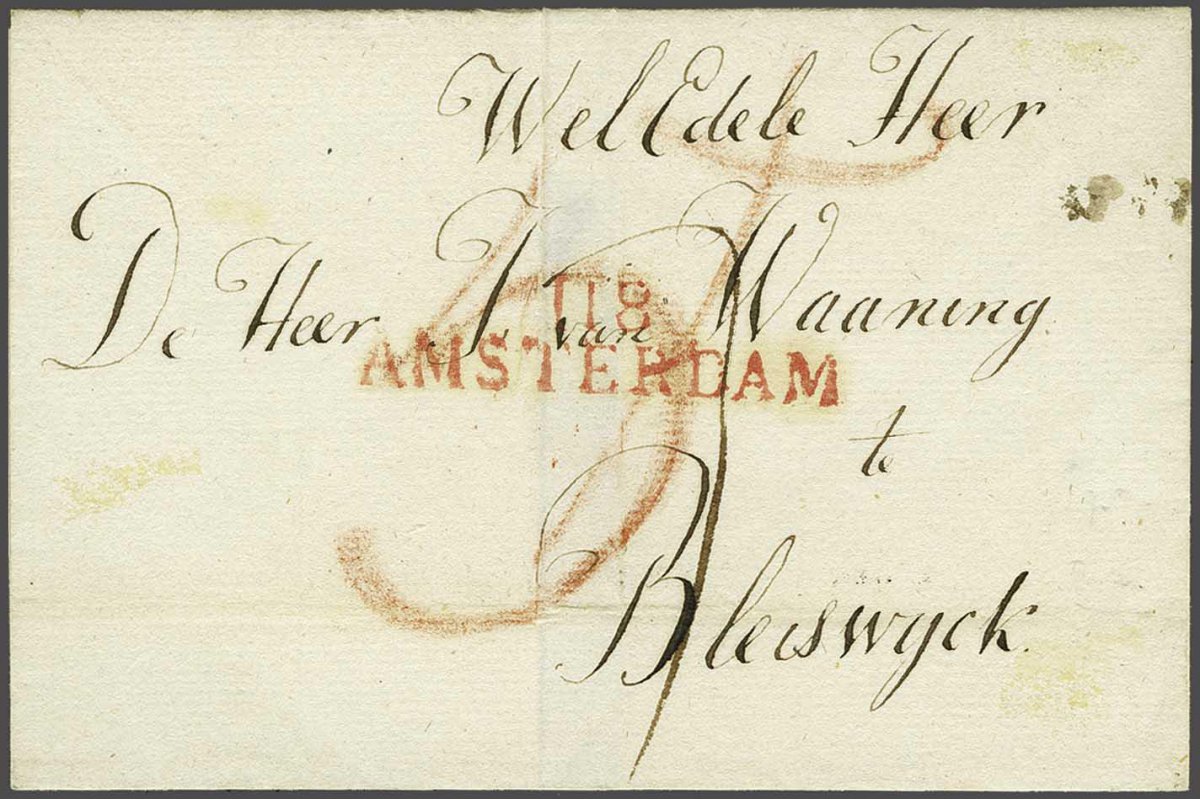 Wel Edele Heer
De Heer J. van Waaning
118
AMSTERDAM
te
Bleiswyck.